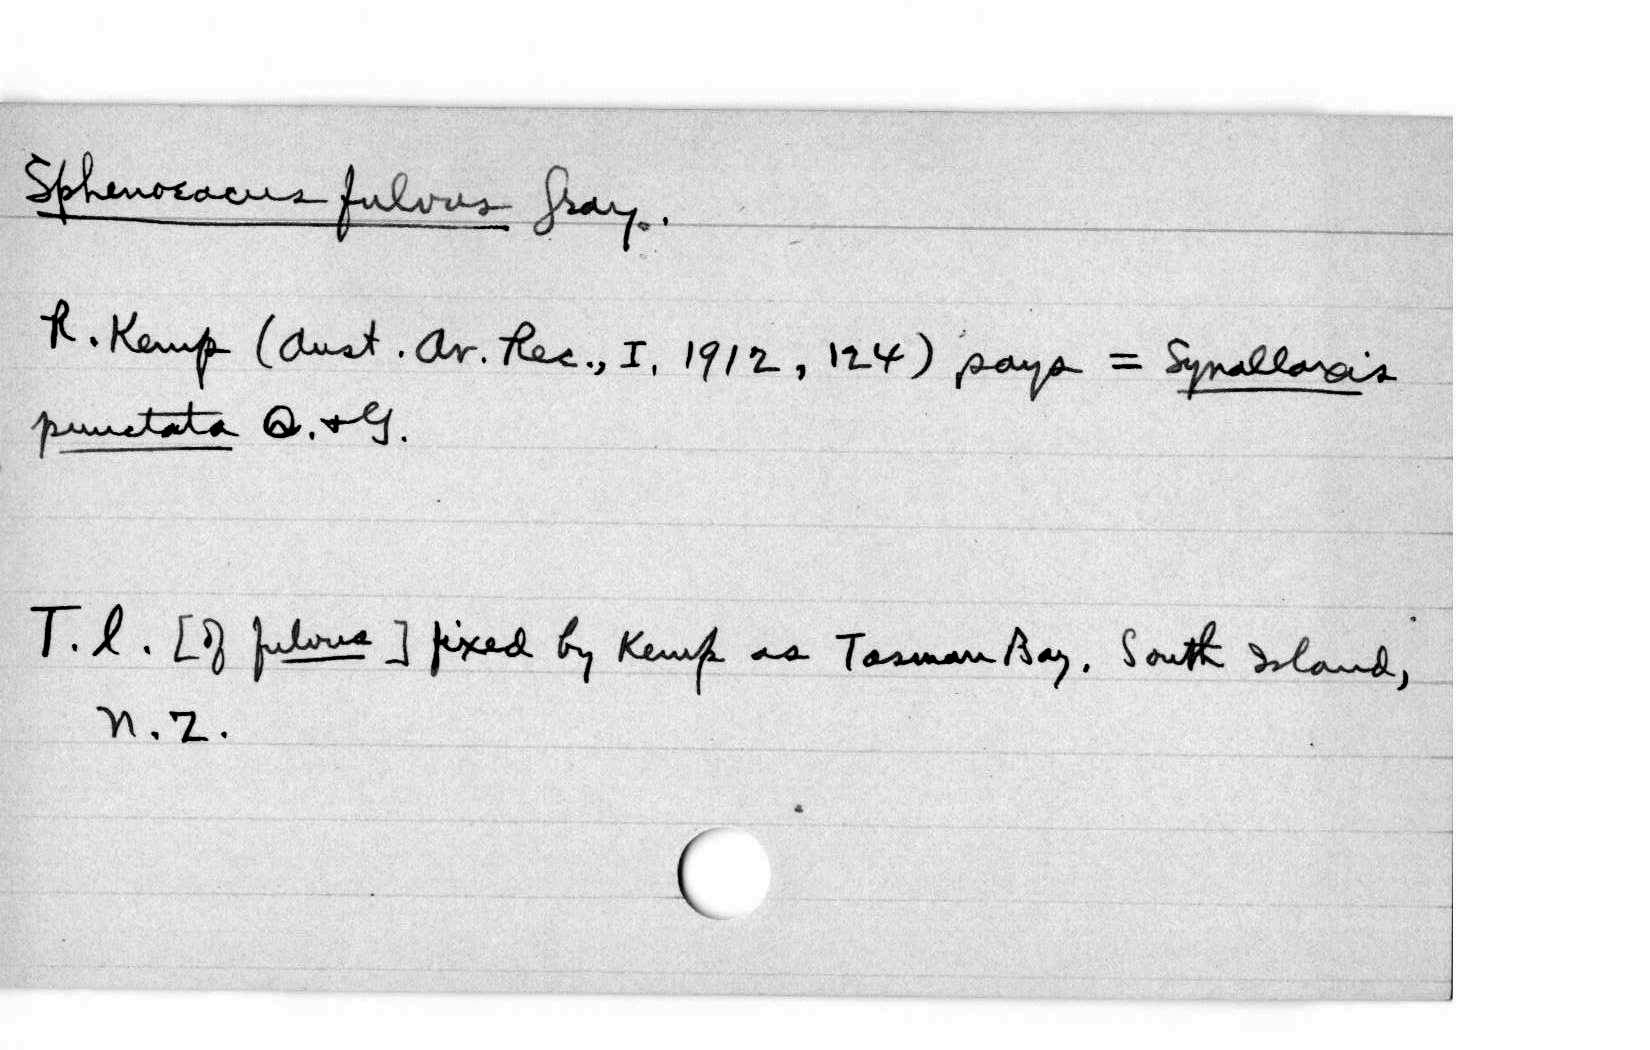 Sphenoeacus fulvus Gray.
R. Kemp (Aust. Av. Rec., I, 1912, 124) says = Synallaxis
punctata Q. + G.
T. l. [of fulvus] fixed by Kemp as Tasman Bay, South Island,
N. Z.